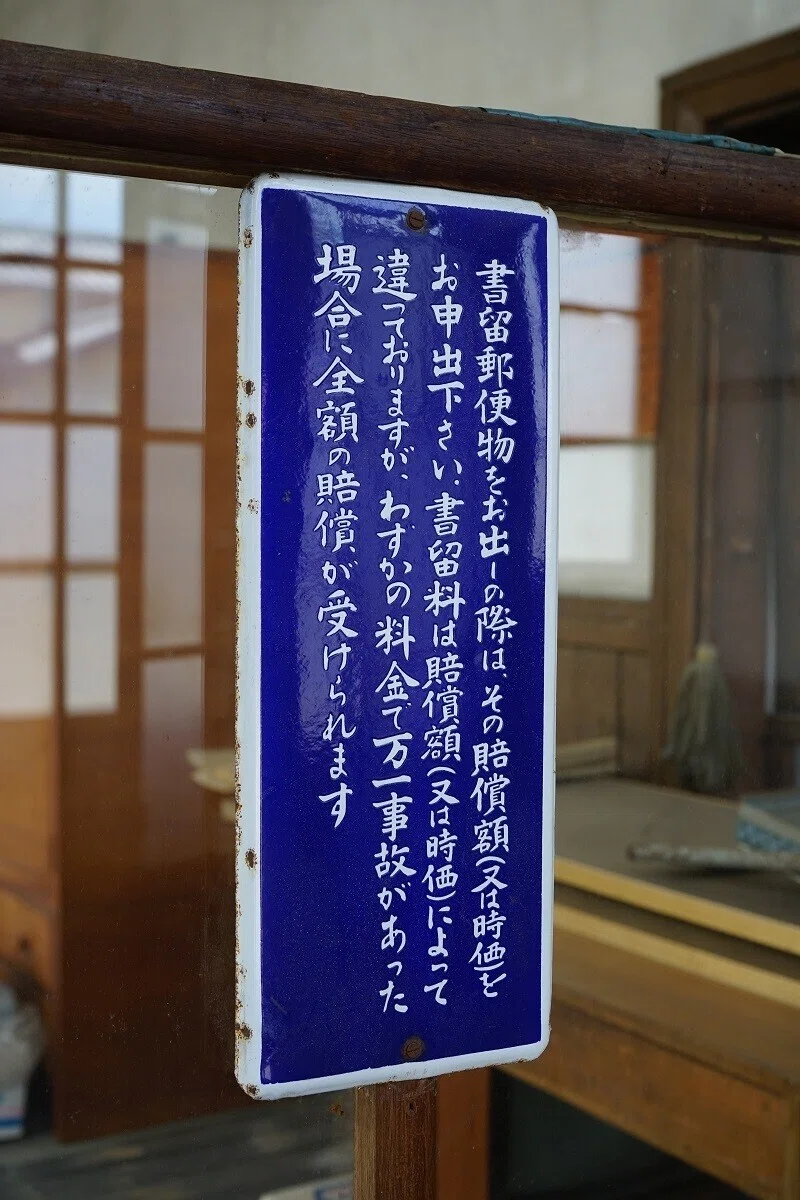 書留郵便物をお出しの際は、その賠償額(又は時価)を
お申出下さい、書留料は賠償額(又は時価)によって
違っておりますが、わずかの料金で万一事故があった
場合に全額の賠償、が受けられます